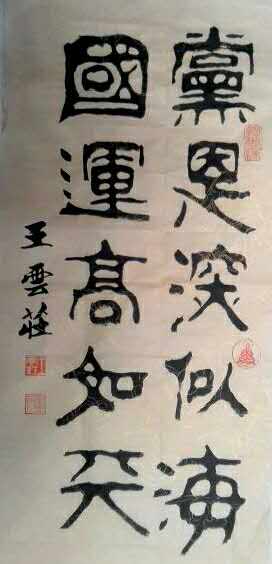 黨恩深似海
國運高如天
王雲莊